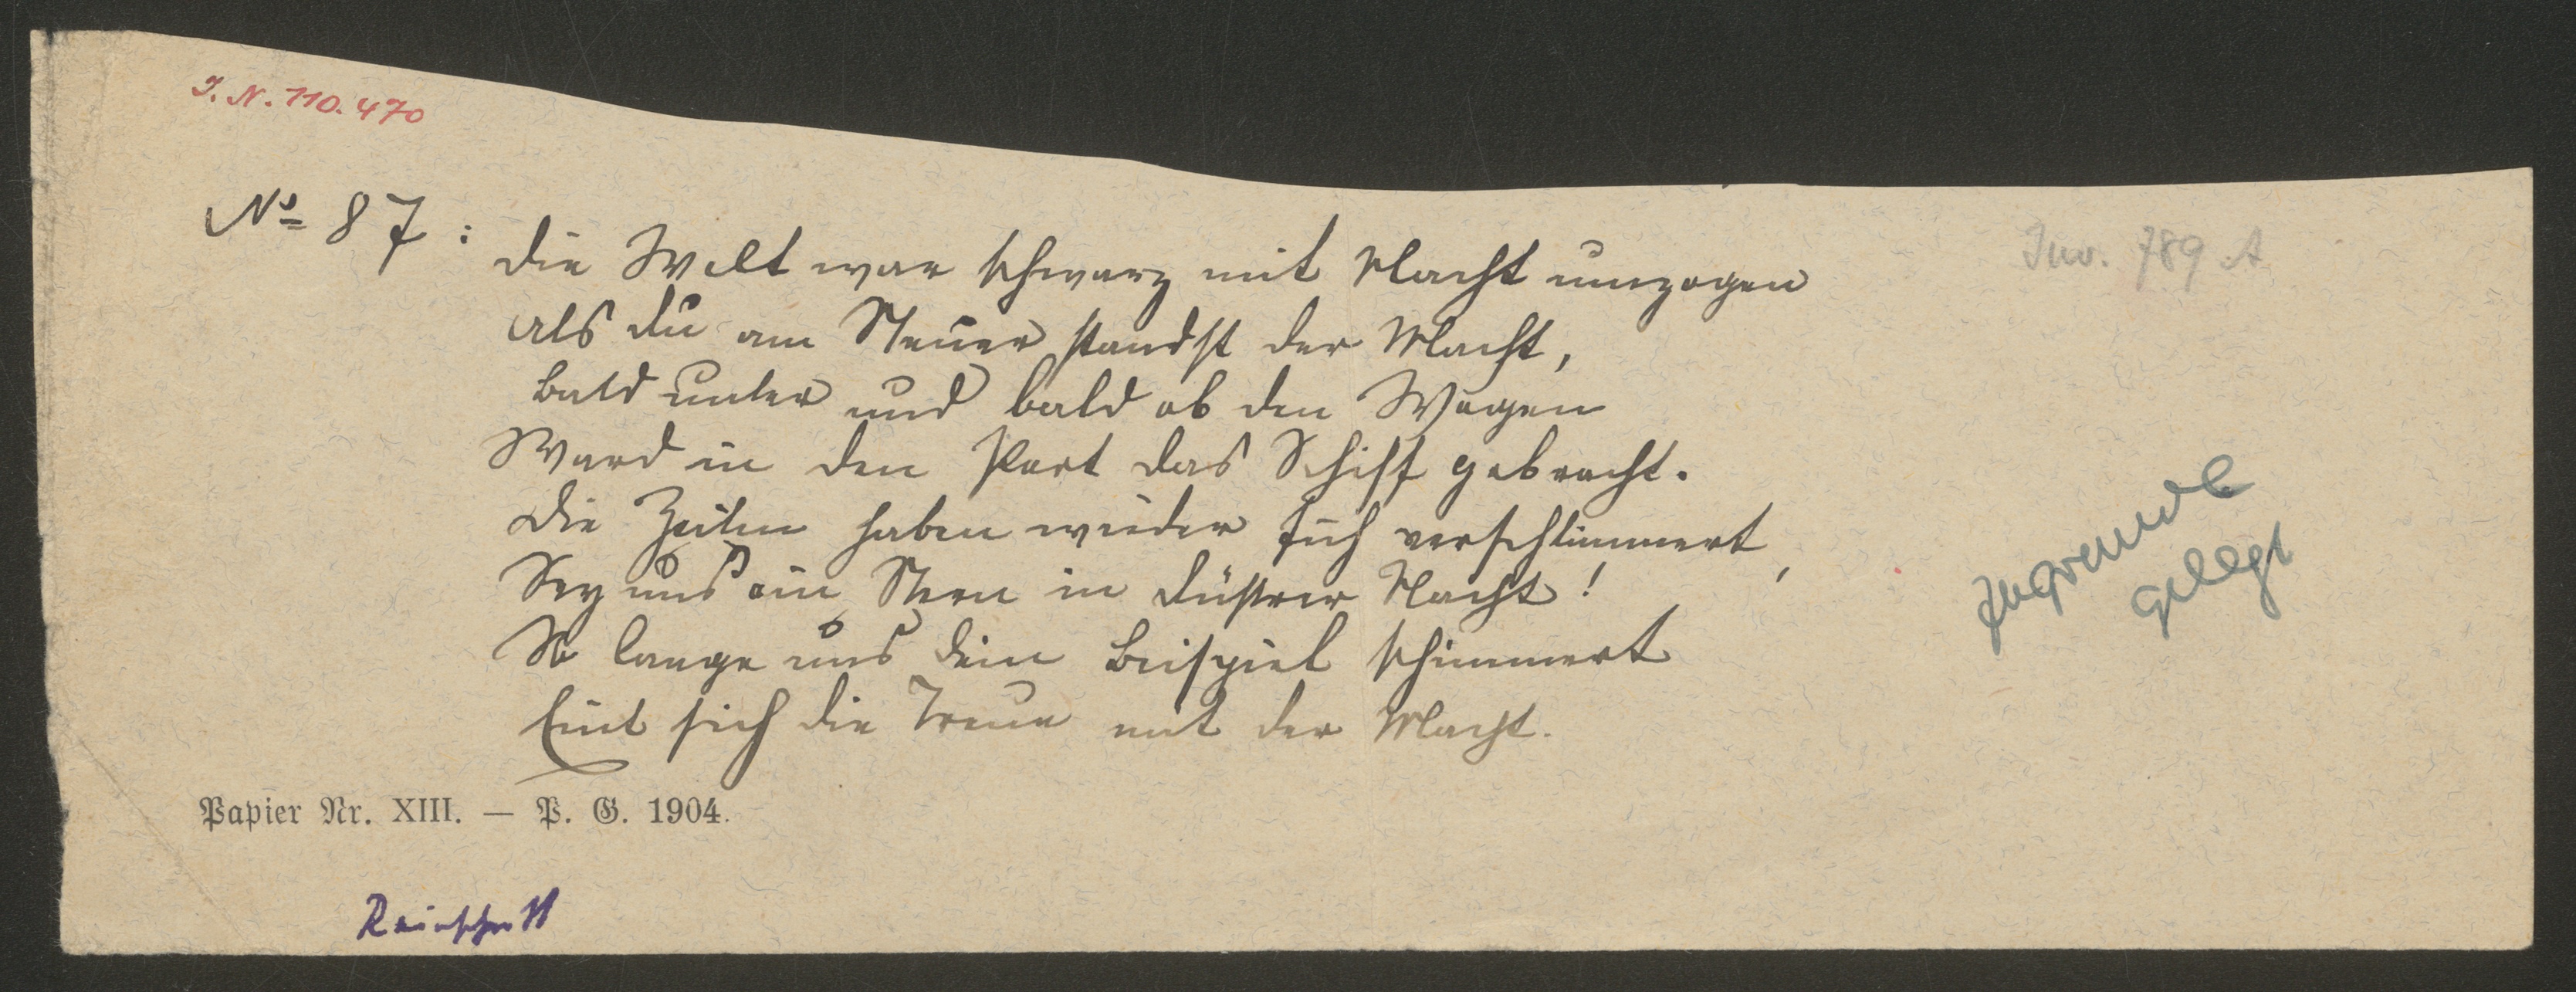 J. N. 110.470
No 87:
Die Welt war schwarz mit Nacht umzogen
Inv. 789 A
Als du am Steuer standst der Macht,
Bald unter und bald ob den Wogen
Ward in den Port das Schiff gebracht.
Die Zeiten haben wieder sich verschlimmert,
Sey uns ein Stern in düstrer Nacht!
So lange uns dein Beispiel schimmert
Eint sich die Treue mit der Macht.
zugrunde
gelegt
Papier Nr. XIII. — P. G. 1904.
Reinschrift